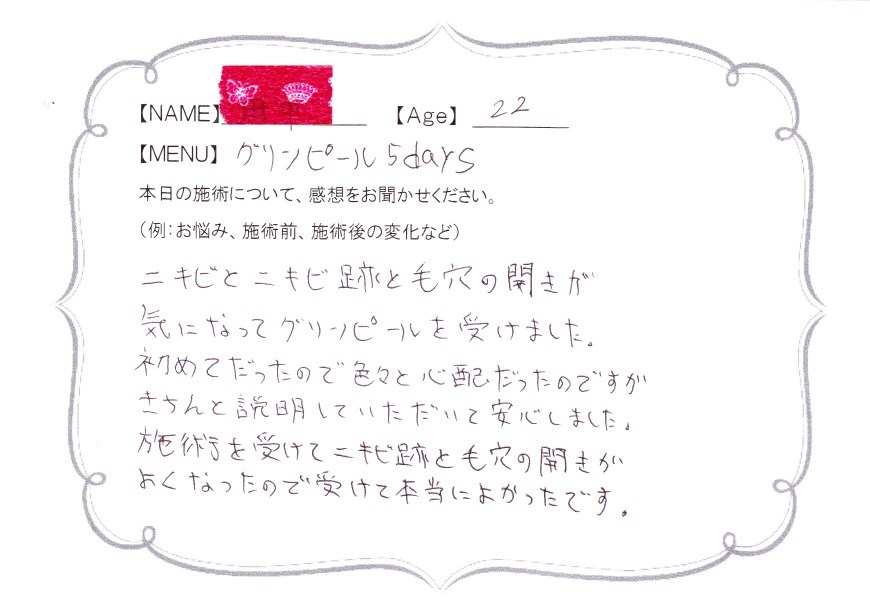 【NAME】 【Age】 22
【MENU】 グリンピール 5days
本日の施術について、感想をお聞かせください。
（例：お悩み、施術前、施術後の変化など）
ニキビとニキビ跡と毛穴の開きが
気になってグリンピールを受けました。
初めてだったので色々と心配だったのですが
きちんと説明していただいて安心しました。
施術を受けてニキビ跡と毛穴の開きが
よくなったので受けて本当によかったです。